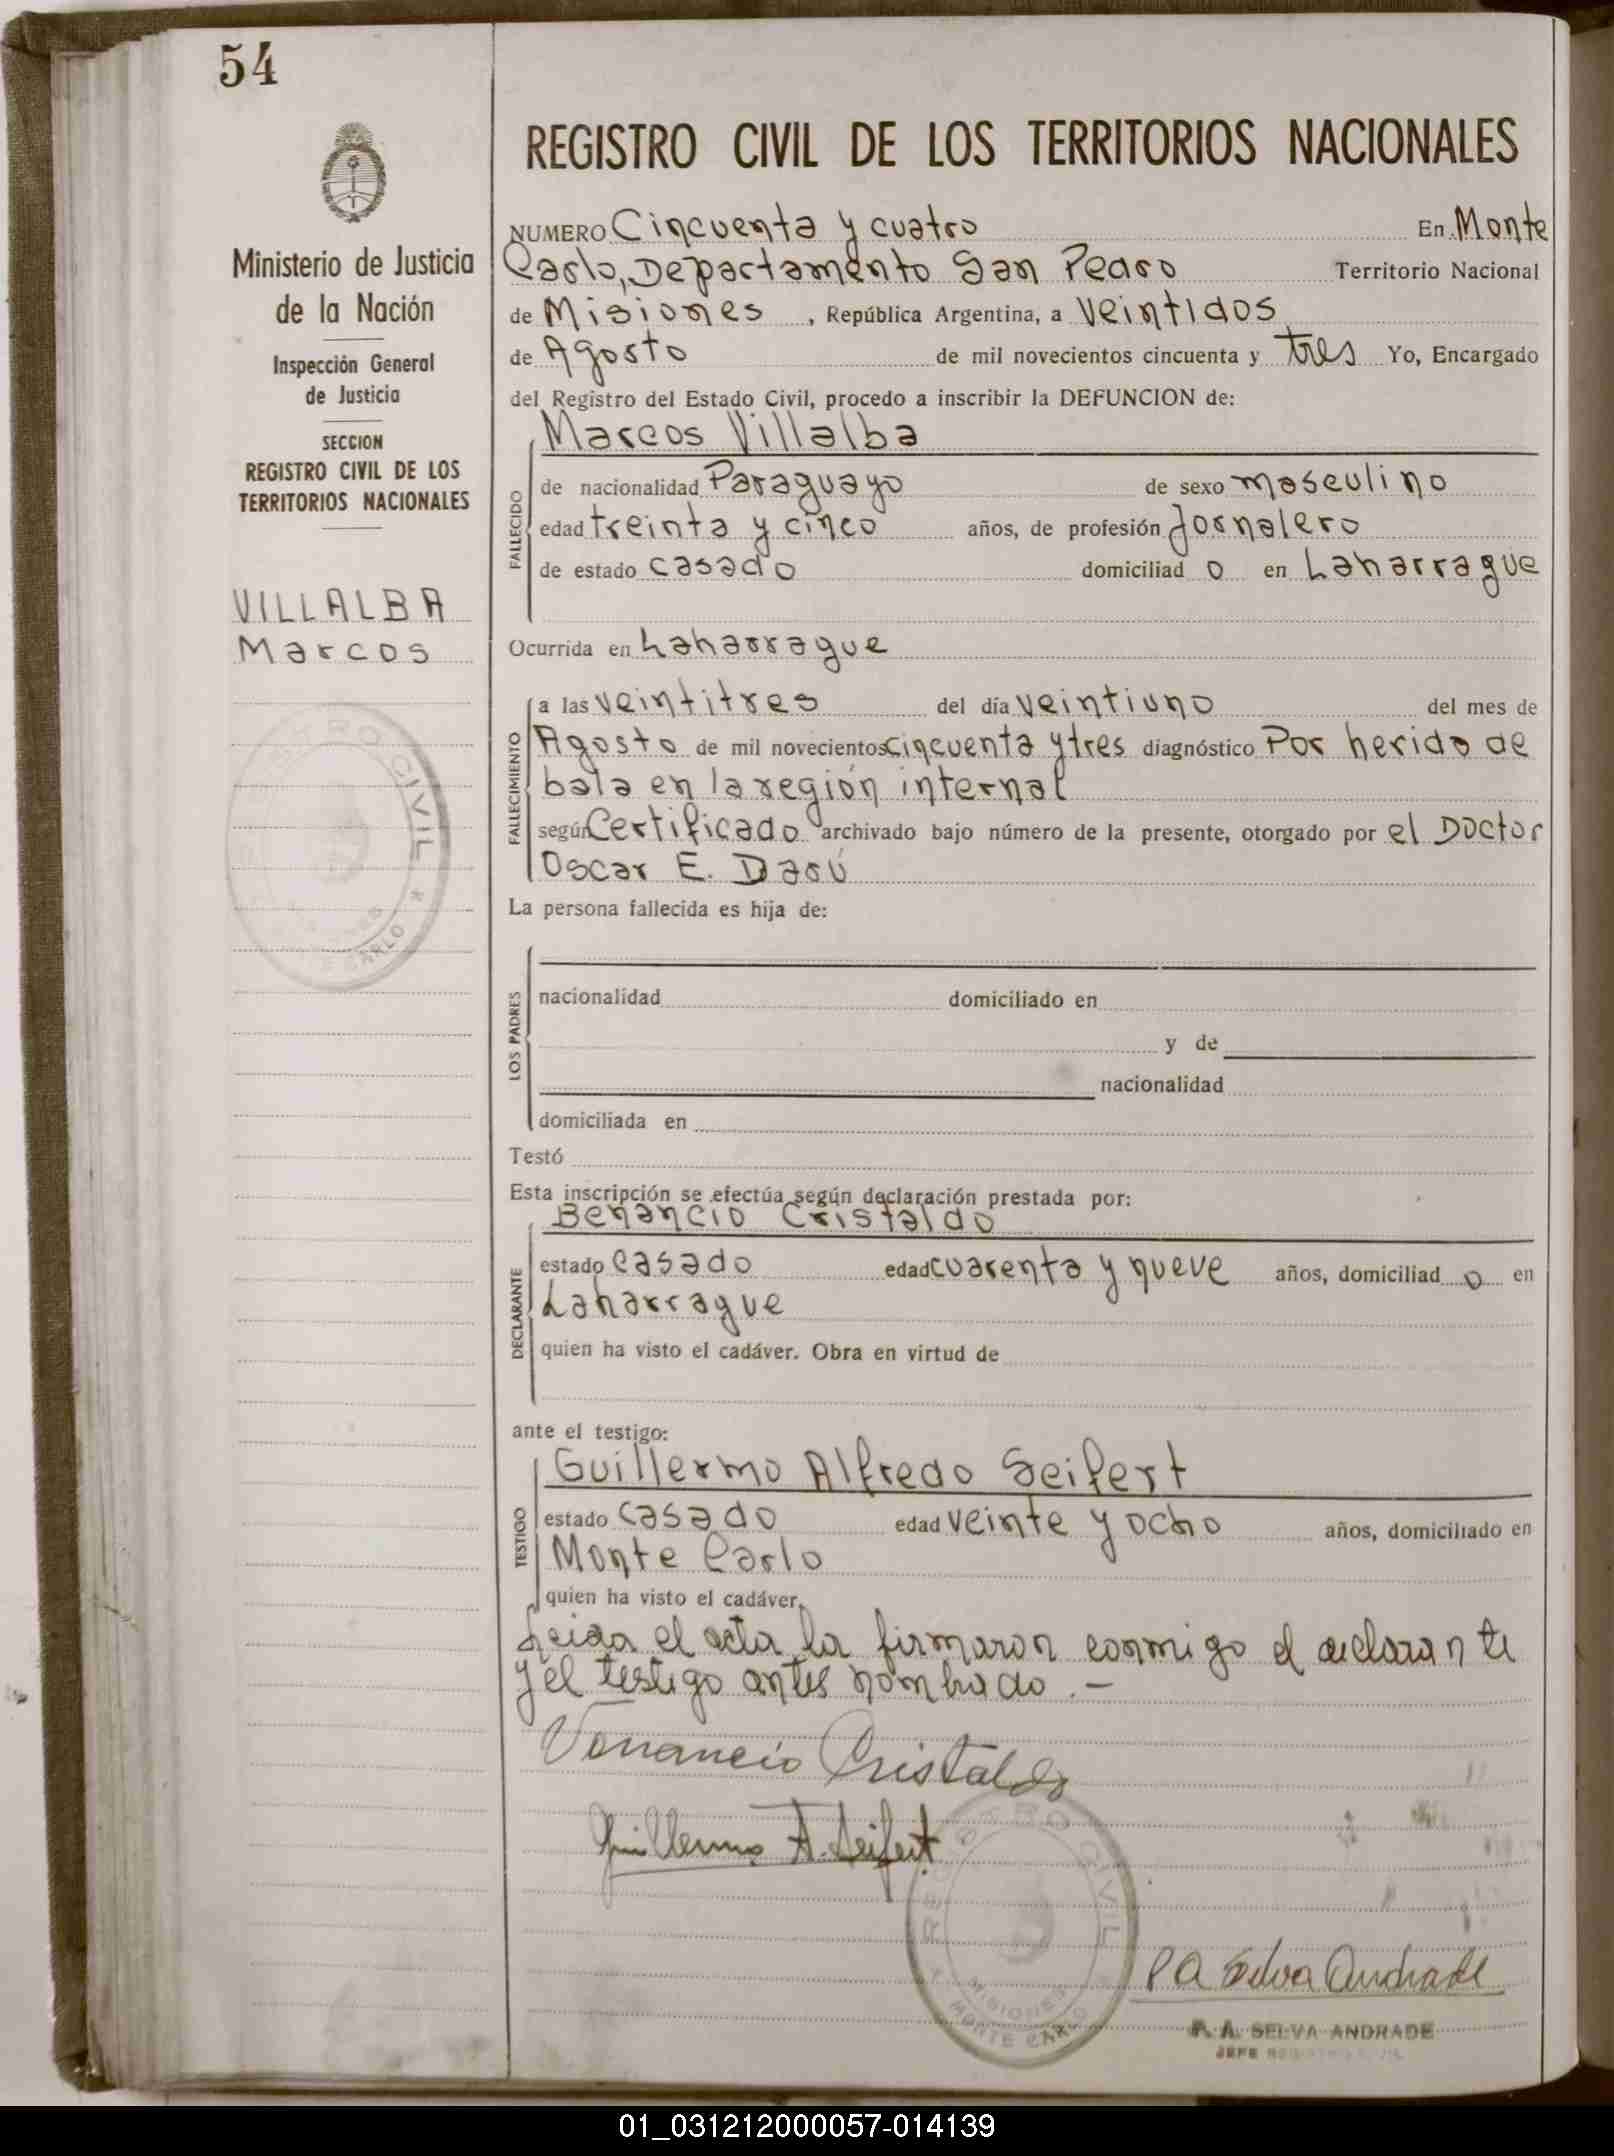 54
Ministerio de Justicia
de la Nación
Inspección General
de Justicia
SECCION
REGISTRO CIVIL DE LOS
TERRITORIOS NACIONALES
VILLALBA
Marcos
REGISTRO CIVIL DE LOS TERRITORIOS NACIONALES
NUMERO Cincuenta y cuatro En Monte
Carlo, Departamento San Pedro Territorio Nacional
de Misiones, República Argentina, a veintidos
de Agosto de mil novecientos cincuenta y tres Yo, Encargado
del Registro del Estado Civil, procedo a inscribir la DEFUNCION de:
FALLECIDO
Marcos Villalba
de nacionalidad Paraguayo de sexo masculino
edad treinta y cinco años, de profesión Jornalero
de estado casado domiciliad o en Laharrague
Ocurrida en Laharrague
FALLECIMIENTO
a las veintitres del día veintiuno del mes de
Agosto de mil novecientos cincuenta y tres diagnóstico Por herido de
bala en la región internal
según Certificado archivado bajo número de la presente, otorgado por el Doctor
Oscar E. Darú
La persona fallecida es hija de:
LOS PADRES
nacionalidad domiciliado en
y de
nacionalidad
domiciliada en
Testó
Esta inscripción se efectúa según declaración prestada por:
DECLARANTE
Benancio Cristaldo
estado casado edad cuarenta y nueve años, domiciliad o en
Laharrague
quien ha visto el cadáver. Obra en virtud de
ante el testigo:
TESTIGO
Guillermo Alfredo Seifert
estado casado edad veinte y ocho años, domiciliado en
Monte Carlo
quien ha visto el cadáver.
Leida el acta la firmaron conmigo el declarante
y el testigo antes nombrado.-
Venancio Cristaldo
Guillermo A. Seifert
REGISTRO CIVIL
MISIONES
MONTE CARLO
P A Selva Andrade
P. A. SELVA ANDRADE
JEFE REGISTRO CIVIL
01_031212000057-014139